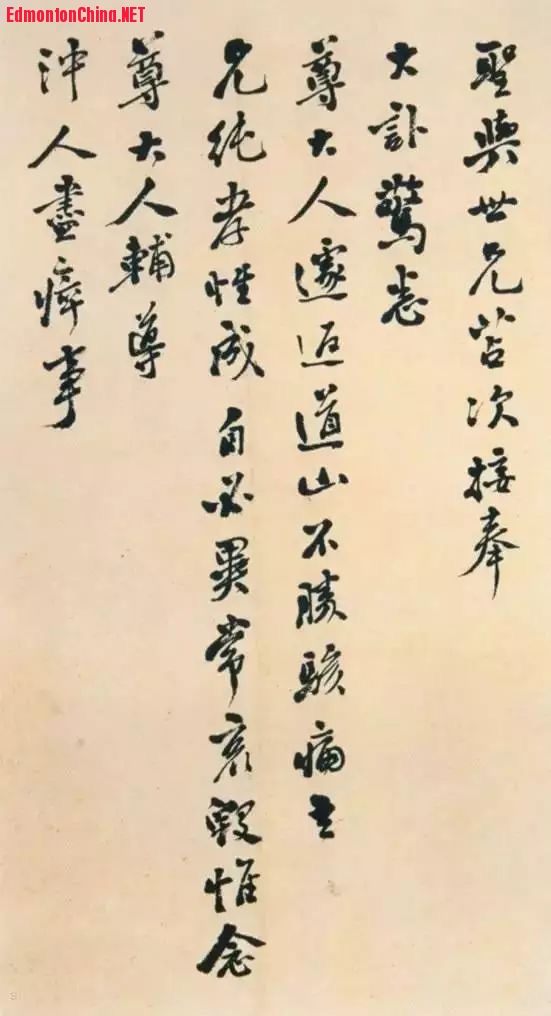 EdmontonChina.NET
聖與世兄苫次接奉
大訃驚悉
尊大人遽返道山不勝駭痛吾
兄純孝性成自必異常哀毀惟念
尊大人輔導
沖人盡瘁事